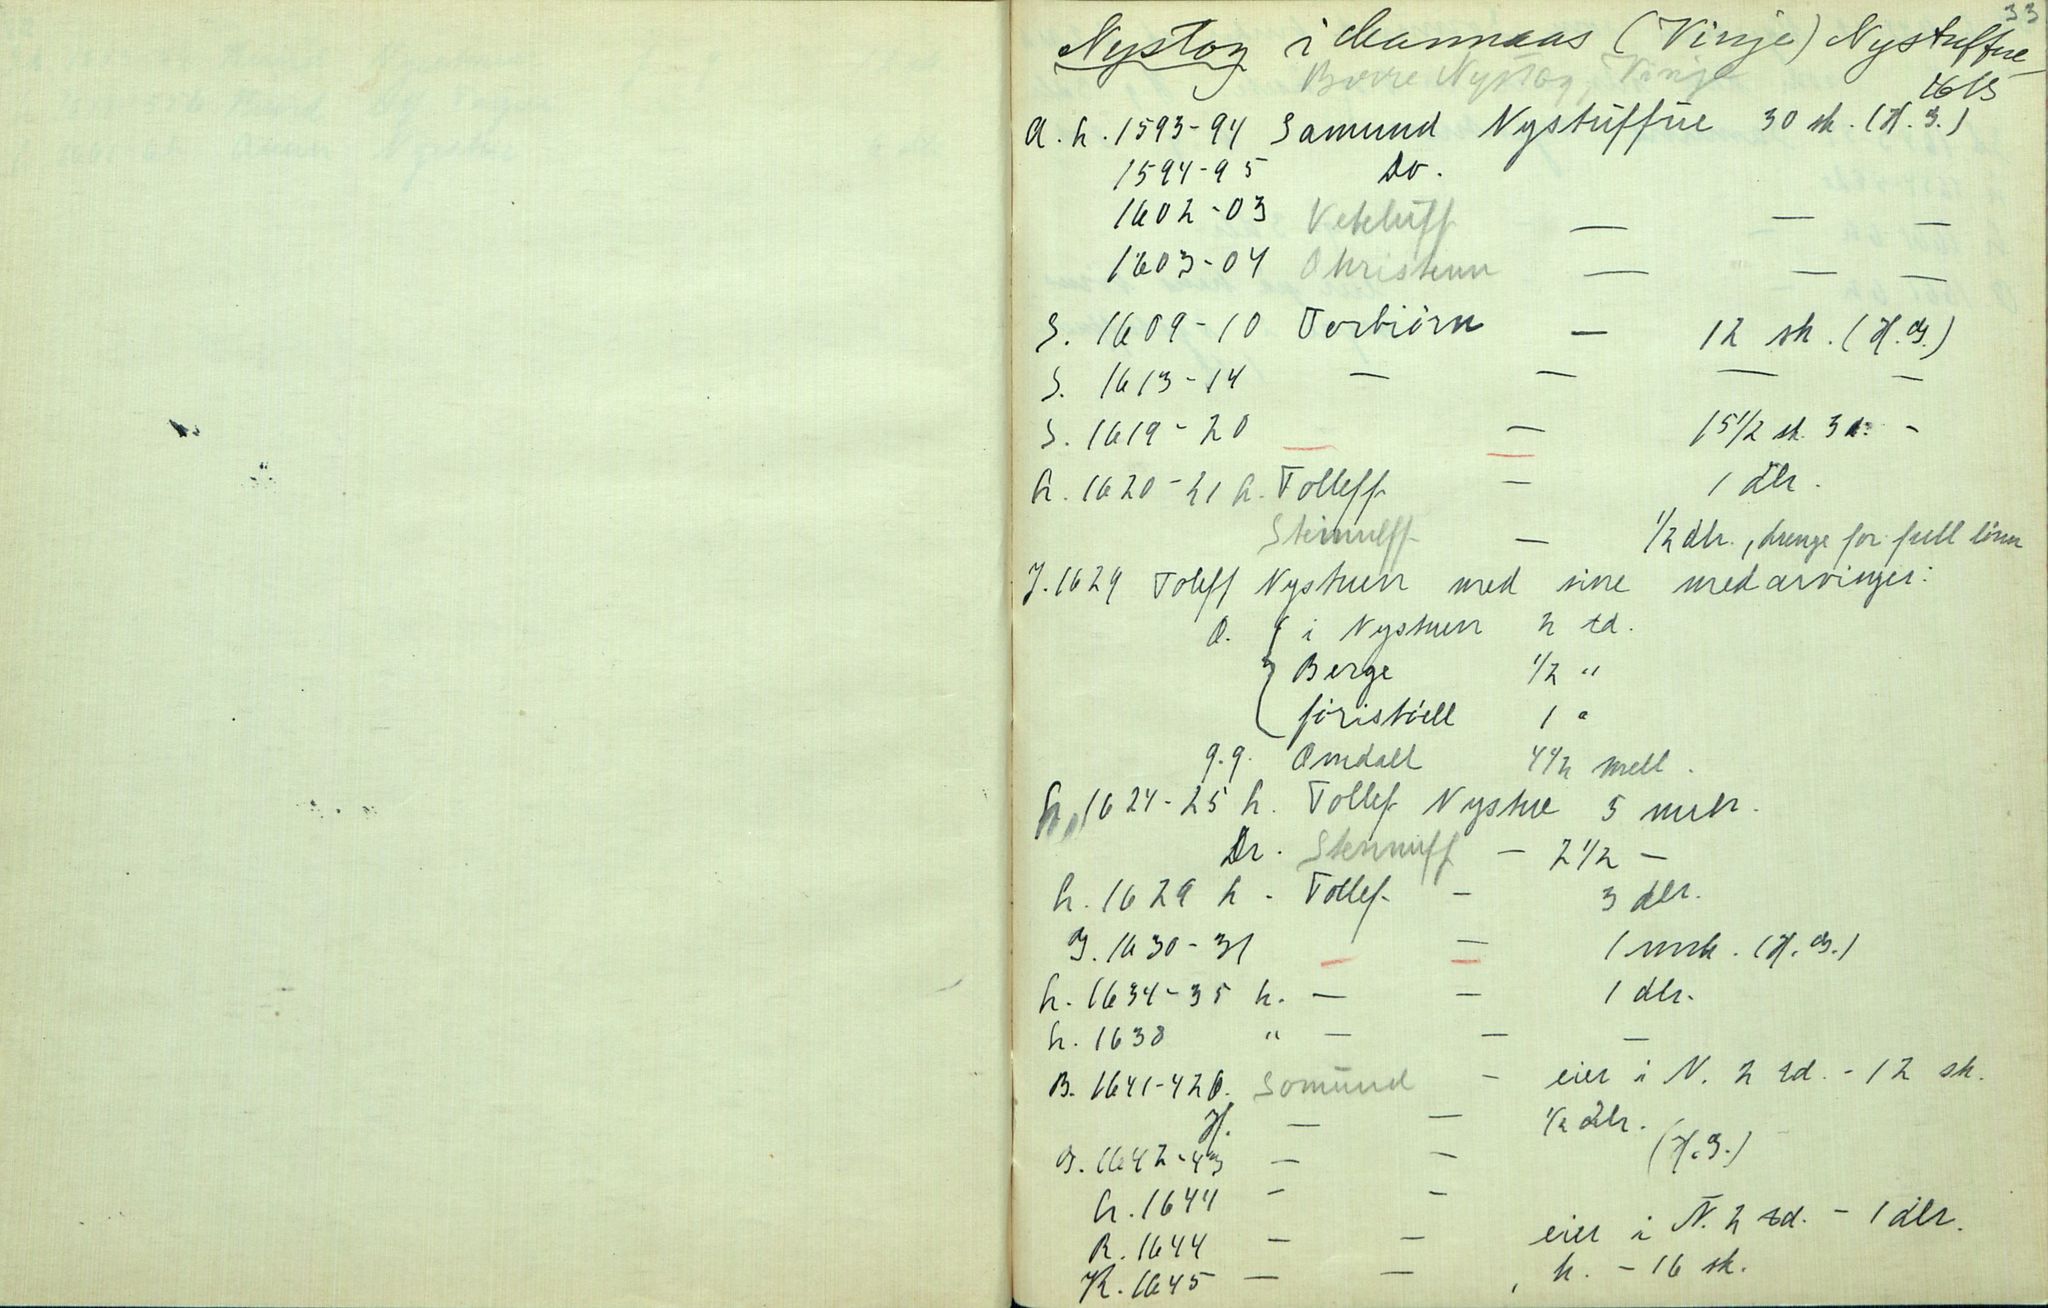 33
Nystog i Mannaas (Vinje) Nystuffue
Børre Nystog, Vinje 1613
A. h. 1593-94 Samund Nystuffue 30 sk. (H. J.)
1594-95 Do.
1602-03 Veteluff — — —
1603-04 Christenn — — —
S. 1609-10 Torbiørn — 12 sk. (H. J.)
S. 1613-14 — — — —
S. 1619-20 — — 15 1/2 sk. 3 -
h. 1620-21 h. Tolleff — 1 dlr.
Steinulff — 1/2 dlr., drenge for full lönn
J. 1624 Toleff Nystuen med sine medarvinger:
O. i Nystuen 2 td.
Berge 1/2 "
föristöell 1 "
g.g. Omdall 4 1/2 mell.
h. 1624-25 h. Tollef Nystue 5 mlr.
Dr. Stennuff — 2 1/2 —
h. 1629 h. Tollef — 3 dlr.
J. 1630-31 — — 1 mrk. (H. J.)
h. 1634-35 h. — — 1 dlr.
h. 1638 " — — —
B. 1641-42 O. Somund — eier i N. 2 td. - 12 sk.
H. — — 1/2 dlr.
J. 1642-43 — — (H. J.)
h. 1644 — —
R. 1644 — — eier i N. 2 td. - 1 dlr.
K. 1645 — — h. - 16 sk.